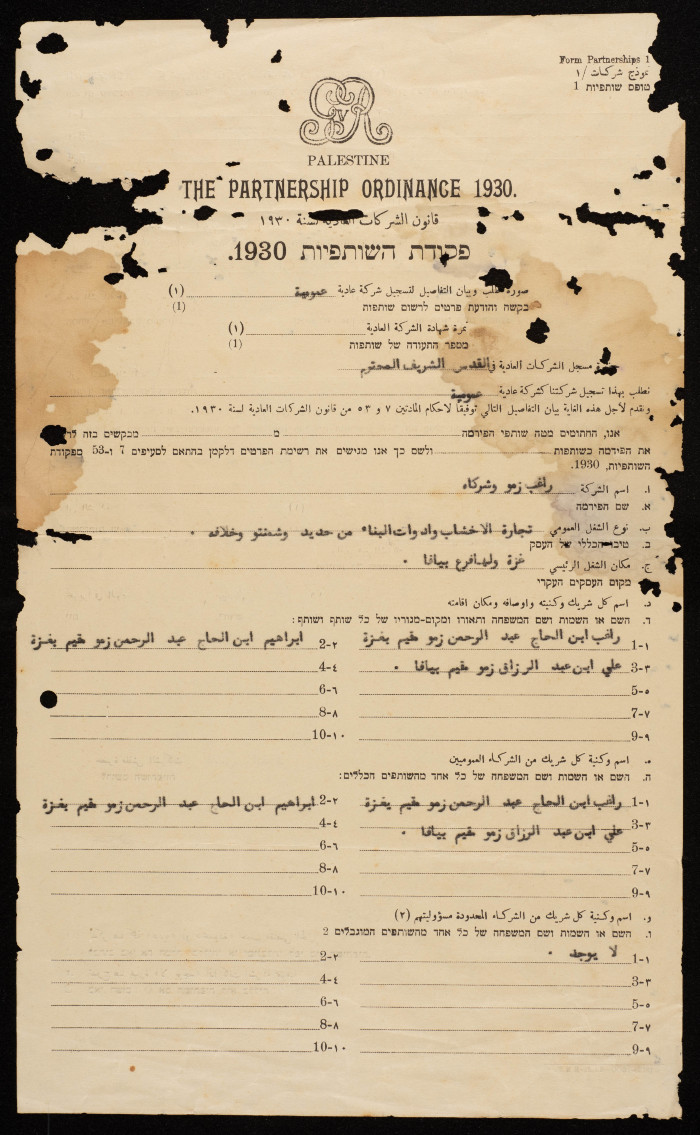 Form Partnerships 1
نموذج شركات /١
טופס שותפיות 1
GvR
PALESTINE
THE PARTNERSHIP ORDINANCE 1930.
قانون الشركات العادية لسنة ١٩٣٠
פקודת השותפיות 1930.
صورة طلب وبيان التفاصيل لتسجيل شركة عادية عمومية (١)
בקשה והודעת פרטים לרשום שותפות (1)
نمرة شهادة الشركة العادية (١)
מספר התעודה של שותפות (1)
مسجل الشركات العادية في القدس الشريف المحترم
نطلب بهذا تسجيل شركتنا كشركة عادية عمومية
ونقدم لأجل هذه الغاية بيان التفاصيل التالي توفيقاً لاحكام المادتين ٧ و ٥٣ من قانون الشركات العادية لسنة ١٩٣٠.
אנו, החתומים מטה שותפי הפירמה מ מבקשים בזה
את הפירמה כשותפות ולשם כך אנו מגישים את רשימת הפרטים דלקמן בהתאם לסעיפים 7 ו-53 מפקודת
השותפיות, 1930.
ا. اسم الشركة راغب زمو وشركاه
א. שם הפירמה
ب. نوع الشغل العمومي تجارة الاخشاب وادوات البناء من حديد وشمنتو وخلافه .
ב. טיבו הכללי של העסק
ج. مكان الشغل الرئيسي غزة ولها فرع بيافا .
מקום העסקים העקרי
د. اسم كل شريك وكنيته واوصافه ومكان اقامته
ד. השם או השמות ושם המשפחה ותאורו ומקום-מגוריו של כל שותף ושותף:
1-١ راغب ابن الحاج عبد الرحمن زمو مقيم بغزة 2-٢ ابراهيم ابن الحاج عبد الرحمن زمو مقيم بغزة
3-٣ علي ابن عبد الرزاق زمو مقيم بيافا . 4-٤
5-٥ 6-٦
7-٧ 8-٨
9-٩ 10-١٠
ه. اسم وكنية كل شريك من الشركاء العموميين
ה. השם או השמות ושם המשפחה של כל אחד מהשותפים הכללים:
1-١ راغب ابن الحاج عبد الرحمن زمو مقيم بغزة 2-٢ ابراهيم ابن الحاج عبد الرحمن زمو مقيم بغزة
3-٣ علي ابن عبد الرزاق زمو مقيم بيافا . 4-٤
5-٥ 6-٦
7-٧ 8-٨
9-٩ 10-١٠
و. اسم وكنية كل شريك من الشركاء المحدودة مسؤوليتهم (٢)
ו. השם או השמות ושם המשפחה של כל אחד מהשותפים המוגבלים 2
1-١ لا يوجد . 2-٢
3-٣ 4-٤
5-٥ 6-٦
7-٧ 8-٨
9-٩ 10-١٠